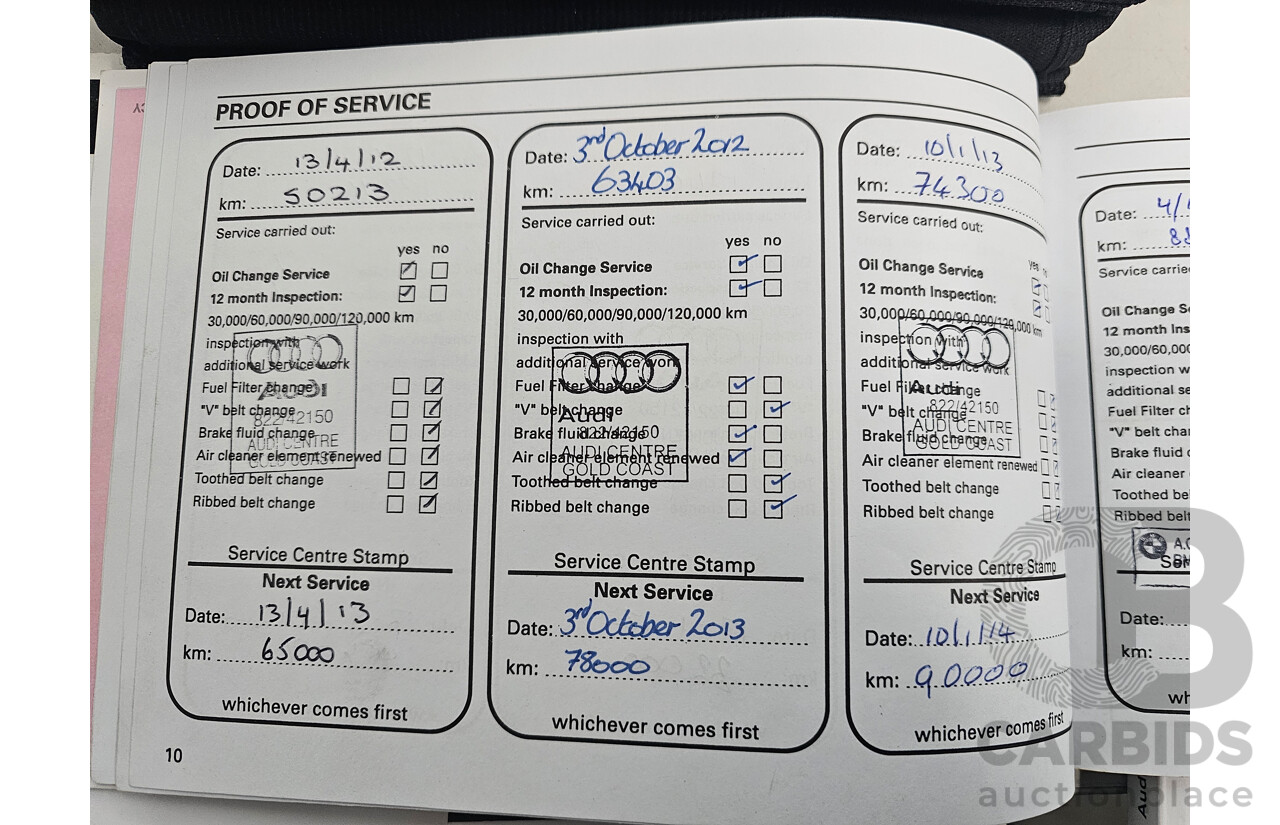 PROOF OF SERVICE
Date: 13/4/12
km: 50213
Service carried out:
yes no
Oil Change Service
12 month Inspection:
30,000/60,000/90,000/120,000 km
inspection with
additional service work
Fuel Filter change
"V" belt change
Brake fluid change
Air cleaner element renewed
Toothed belt change
Ribbed belt change
Audi
822/42150
AUDI CENTRE
GOLD COAST
Service Centre Stamp
Next Service
Date: 13/4/13
km: 65000
whichever comes first
10
Date: 3rd October 2012
km: 63403
Service carried out:
yes no
Oil Change Service
12 month Inspection:
30,000/60,000/90,000/120,000 km
inspection with
additional service work
Fuel Filter change
"V" belt change
Brake fluid change
Air cleaner element renewed
Toothed belt change
Ribbed belt change
Audi
822/42150
AUDI CENTRE
GOLD COAST
Service Centre Stamp
Next Service
Date: 3rd October 2013
km: 78000
whichever comes first
Date: 10/1/13
km: 74300
Service carried out:
yes
Oil Change Service
12 month Inspection:
30,000/60,000/90,000/120,000 km
inspection with
additional service work
Fuel Filter change
"V" belt change
Brake fluid change
Air cleaner element renewed
Toothed belt change
Ribbed belt change
Audi
822/42150
AUDI CENTRE
GOLD COAST
Service Centre Stamp
Next Service
Date: 10/1/14
km: 90000
whichever comes first
Date: 4/
km:
Service carrie
Oil Change Se
12 month Ins
30,000/60,000
inspection w
additional se
Fuel Filter ch
"V" belt chan
Brake fluid c
Air cleaner
Toothed be
Ribbed belt
Date:
km:
wh
Aud
CB
CARBIDS
auctionplace